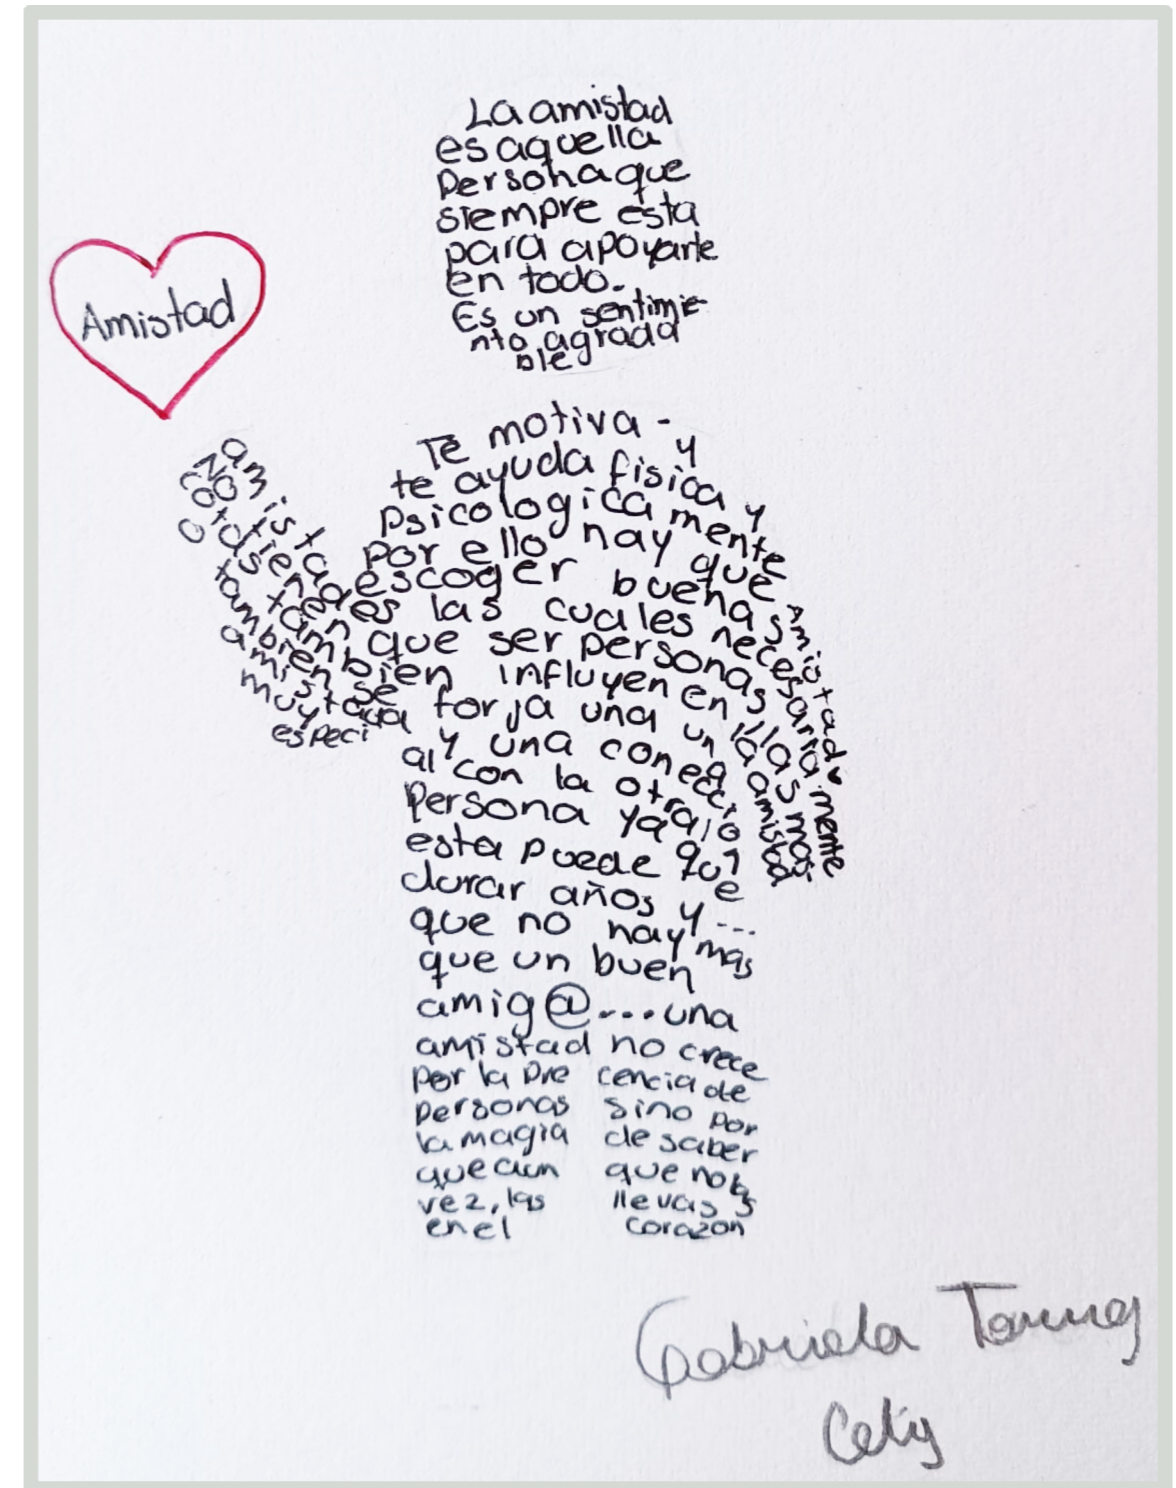 Amistad
La amistad
es aquella
Persona que
siempre esta
para apoyarte
en todo.
Es un sentimie
nto agrada
ble
Te motiva - y
te ayuda fisica y
Psicologicamente
Por ello hay que
escoger buenas Amistad
amistades las cuales necesariamente
No tienen que ser personas
tambien influyen en las mas
o tambien se forja una un la amistad
amistad y una conecció
muy especi
al con la otra
Persona ya que
esta puede
durar años y...
que no hay mas
que un buen
amig@...una
amistad no crece
Por la pre cencia de
personas sino por
la magia de saber
que aun que no las
vez, las llevas
en el corazon
Gabriela
Celis